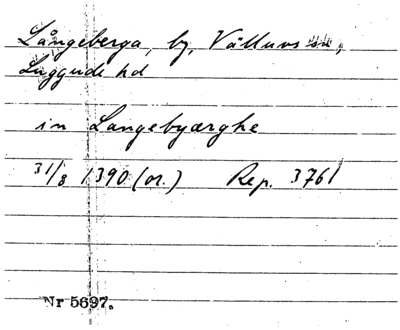 Långeberga, by, Välluvs sn,
Luggude hd
in Langebyærghe
31/8 1390 (or.) Rep. 3761
Nr 5697.